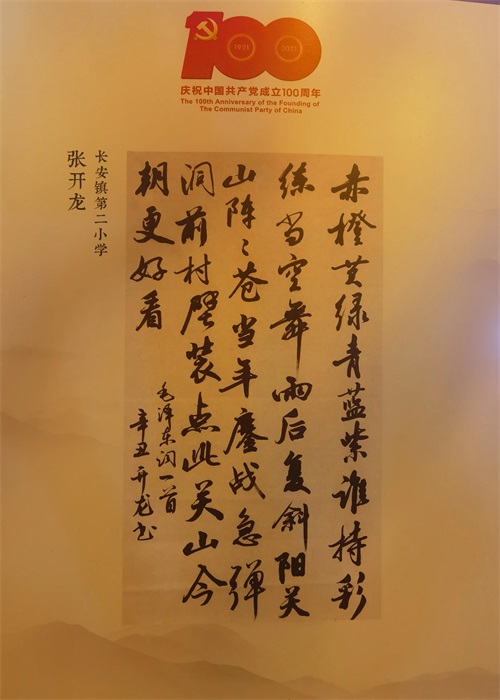 100
1921 2021
庆祝中国共产党成立100周年
The 100th Anniversary of the Founding of
The Communist Party of China
赤橙黄绿青蓝紫谁持彩
练当空舞雨后复斜阳关
山阵々苍当年鏖战急弹
洞前村壁装点此关山今
朝更好看
毛泽东词一首
辛丑开龙书
长安镇第二小学
张开龙